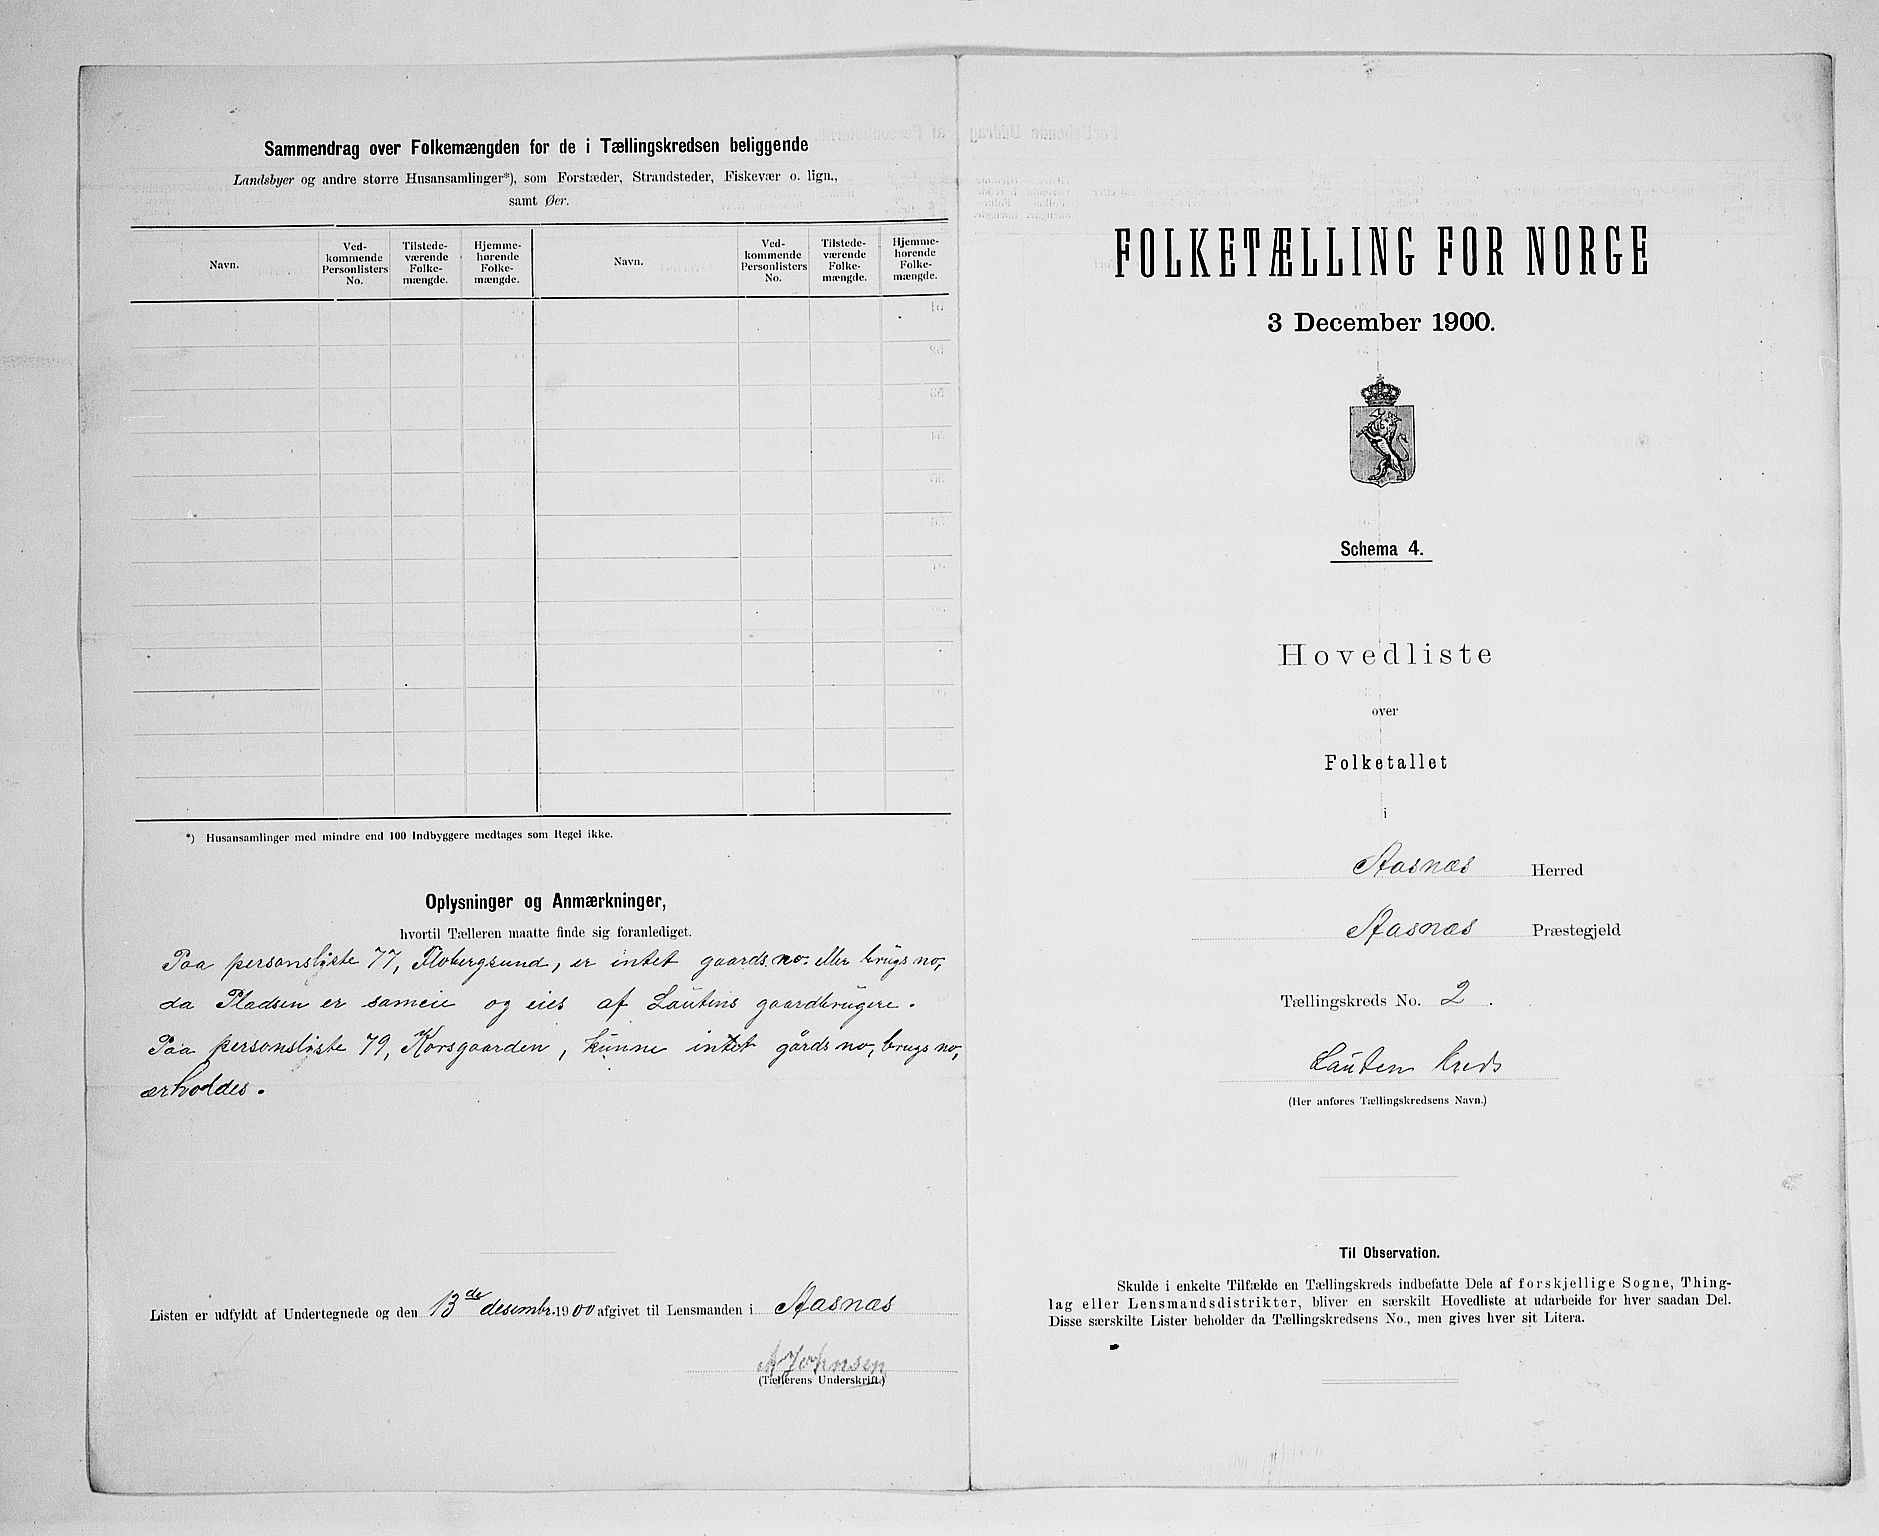 Sammendrag over Folkemængden for de i Tællingskredsen beliggende
Landsbyer og andre større Husansamlinger*), som Forstæder, Strandsteder, Fiskevær o. lign.,
samt Øer.
Navn.
Ved-
kommende
Personlisters
No.
Tilstede-
værende
Folke-
mængde.
Hjemme-
hørende
Folke-
mængde.
Navn.
Ved-
kommende
Personlisters
No.
Tilstede-
værende
Folke-
mængde.
Hjemme-
hørende
Folke-
mængde.
*) Husansamlinger med mindre end 100 Indbyggere medtages som Regel ikke.
Oplysninger og Anmærkninger,
hvortil Tælleren maatte finde sig foranlediget.
Paa personsliste 77, Flobergsund, er intet gaards no. eller brugs no,
da Pladsen er sameie og eies af Lautens gaardbrugere.
Paa personsliste 79, Korsgaarden, kunne intet gårds no, brugs no,
ærholdes.
Listen er udfyldt af Undertegnede og den 13de desembr. 1900 afgivet til Lensmanden i Aasnæs
A Johnsen
(Tællerens Underskrift.)
FOLKETÆLLING FOR NORGE
3 December 1900.
Schema 4.
Hovedliste
over
Folketallet
i
Aasnæs Herred
Aasnæs Præstegjeld
Tællingskreds No. 2.
Lauten kreds
(Her anføres Tællingskredsens Navn.)
Til Observation.
Skulde i enkelte Tilfælde en Tællingskreds indbefatte Dele af forskjellige Sogne, Thing-
lag eller Lensmandsdistrikter, bliver en særskilt Hovedliste at udarbeide for hver saadan Del.
Disse særskilte Lister beholder da Tællingskredsens No., men gives hver sit Litera.